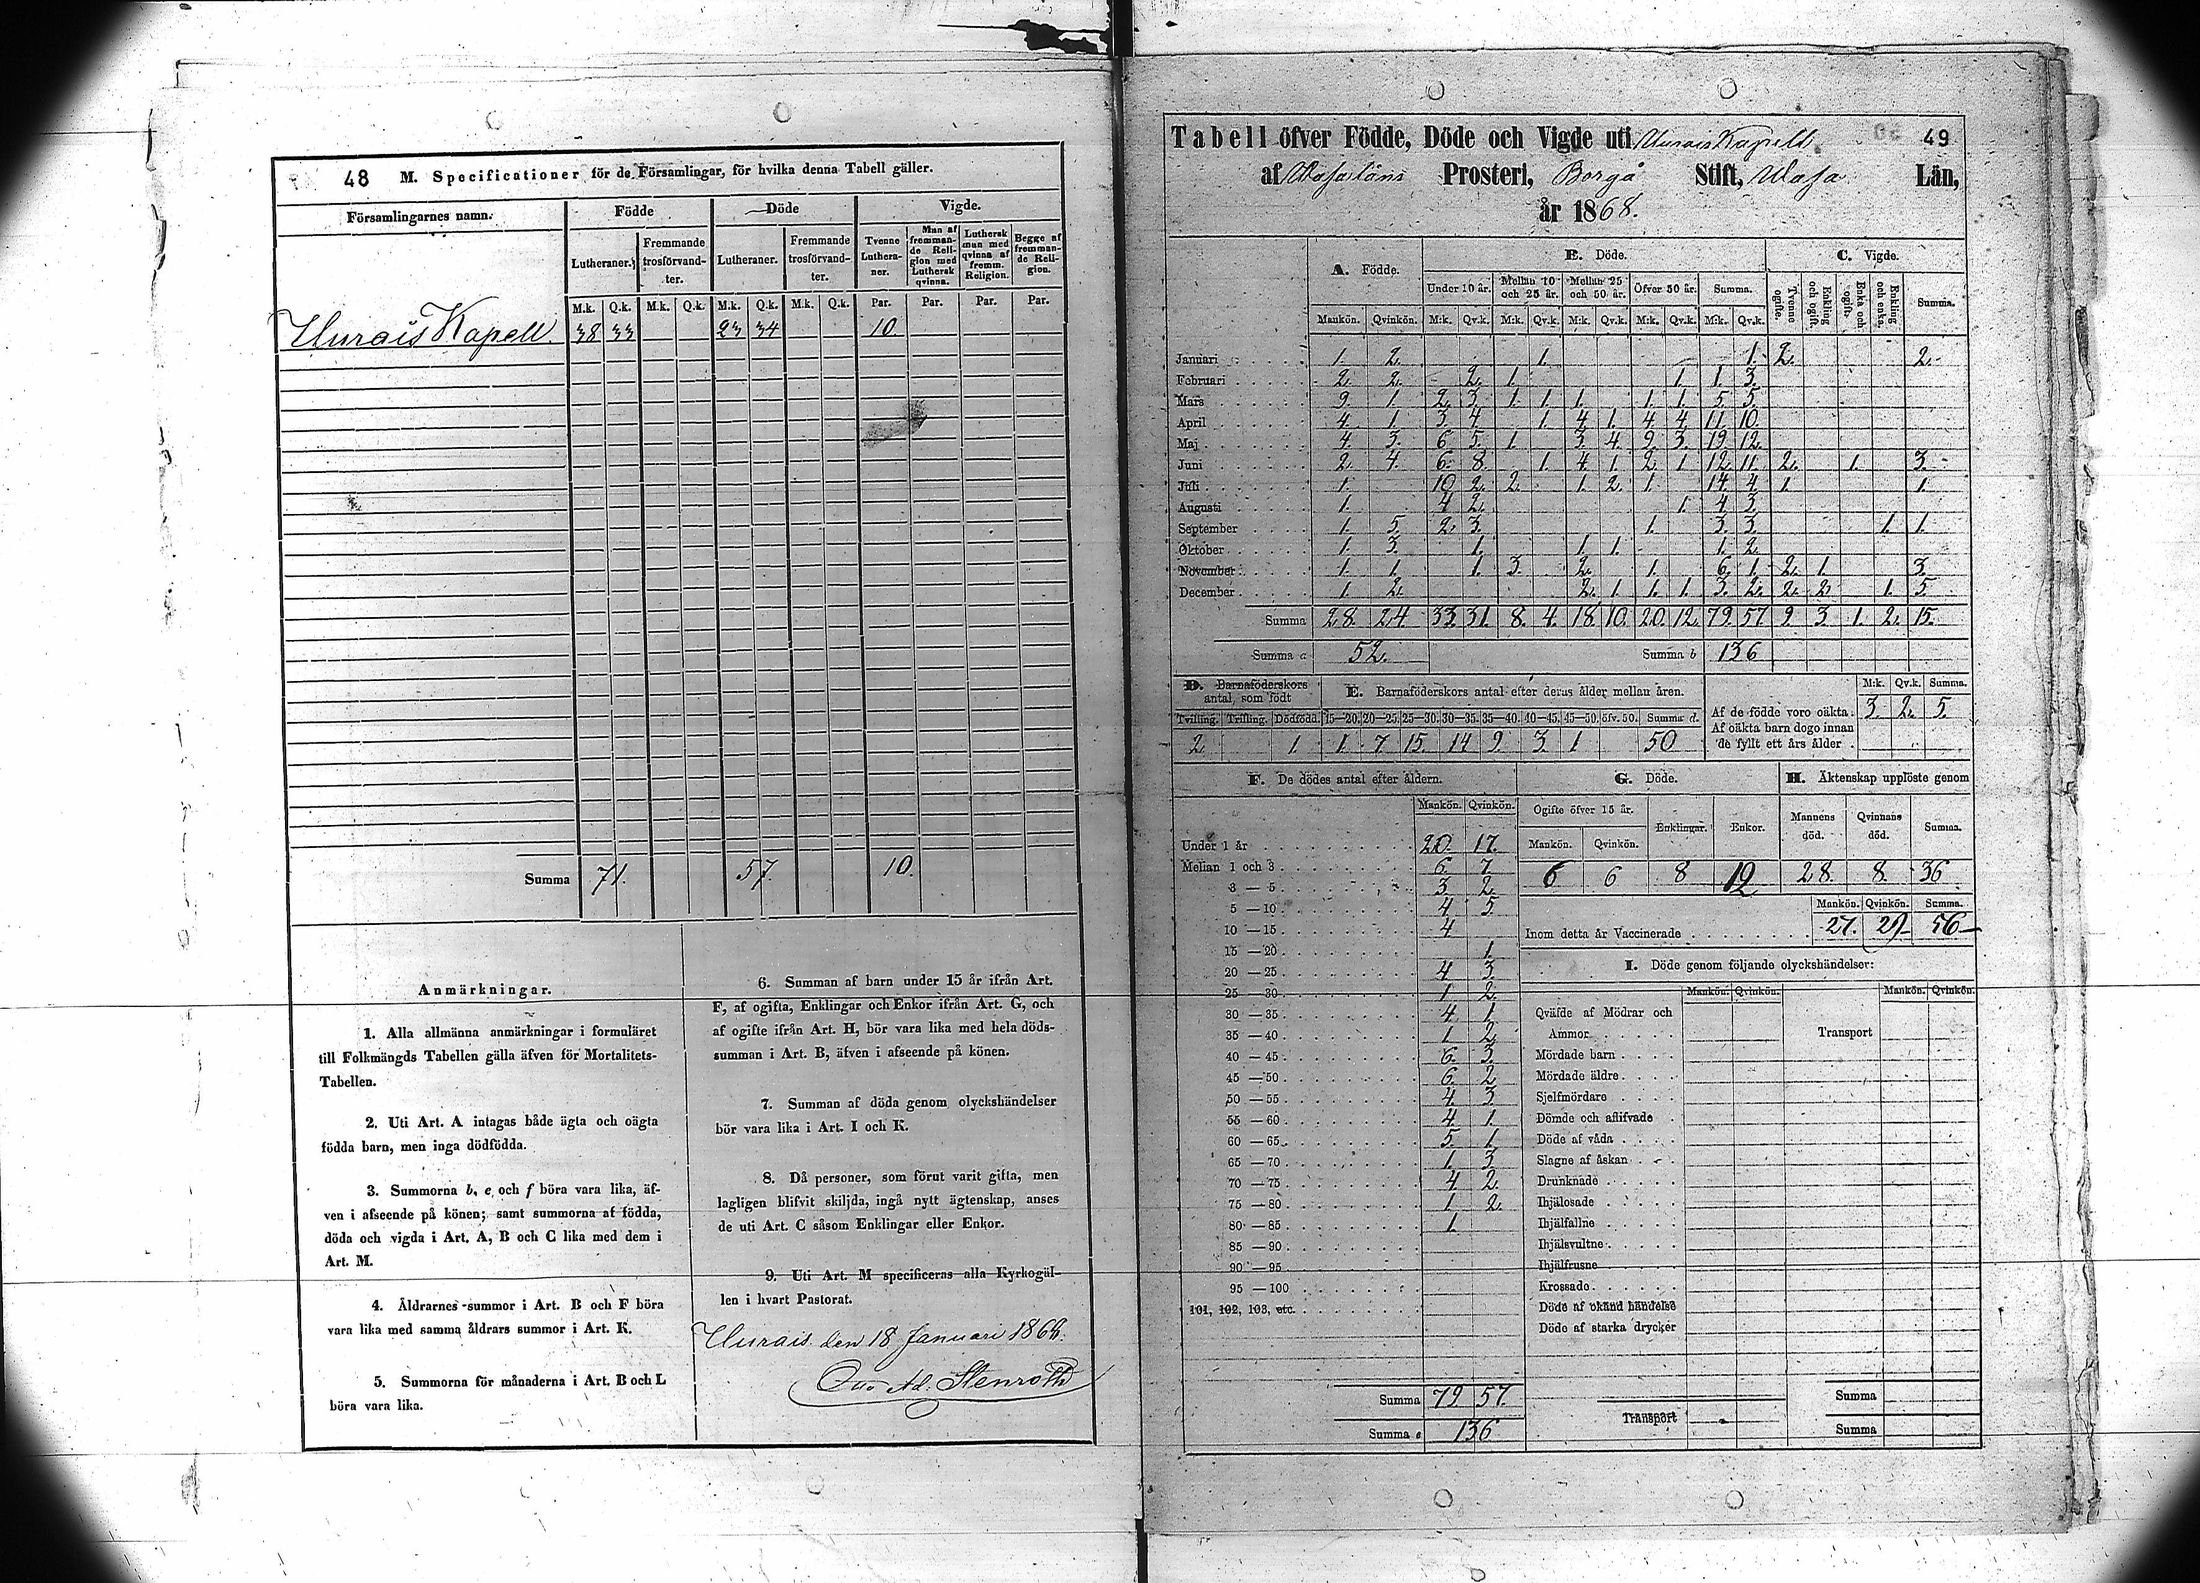 48 M. Specificationer för de Församlingar, för hvilka denna Tabell gäller.
Församlingarnes namn. Födde Döde Vigde.
Lutheraner. Fremmande trosförvandter. Lutheraner. Fremmande trosförvandter. Tvenne Lutheraner. Man af fremmande Religion med Luthersk qvinna. Luthersk man med qvinna af fremm. Religion. Begge af fremmande Religion.
M.k. Q.k. M.k. Q.k. M.k. Q.k. M.k. Q.k. Par. Par. Par. Par.
Kapell. 38 33 23 34 10
Summa 71. 57. 10.
Anmärkningar.
1. Alla allmänna anmärkningar i formuläret
till Folkmängds Tabellen gälla äfven för Mortalitets-
Tabellen.
2. Uti Art. A intagas både ägta och oägta
födda barn, men inga dödfödda.
3. Summorna b, e och f böra vara lika, äf-
ven i afseende på könen; samt summorna af födda,
döda och vigda i Art. A, B och C lika med dem i
Art. M.
4. Åldrarnes summor i Art. B och F böra
vara lika med samma åldrars summor i Art. K.
5. Summorna för månaderna i Art. B och L
böra vara lika.
6. Summan af barn under 15 år ifrån Art.
F, af ogifta, Enklingar och Enkor ifrån Art. G, och
af ogifte ifrån Art. H, bör vara lika med hela döds-
summan i Art. B, äfven i afseende på könen.
7. Summan af döda genom olyckshändelser
bör vara lika i Art. I och K.
8. Då personer, som förut varit gifta, men
lagligen blifvit skiljda, ingå nytt ägtenskap, anses
de uti Art. C såsom Enklingar eller Enkor.
9. Uti Art. M specificeras alla Kyrkogäl-
len i hvart Pastorat.
den 18 Januari 1868.
Stenroth
49
Tabell öfver Födde, Döde och Vigde uti Kapell
af Wasa läns Prosteri, Borgå Stift, Wasa Län,
år 1868.
A. Födde. B. Döde. C. Vigde.
Under 10 år. Mellan 10 och 25 år. Mellan 25 och 50 år. Öfver 50 år. Summa. Tvenne ogifte. Enkling och ogift. Enka och ogift. Enkling och enka. Summa.
Mankön. Qvinkön. M:k. Qv.k. M:k. Qv.k. M:k. Qv.k. M:k. Qv.k. M:k. Qv.k.
Januari 1. 2. 1. 1. 2. 2.
Februari 2. 2. 2. 1. 1. 1. 3.
Mars 9. 1. 2. 3. 1. 1. 1. 1. 1. 5. 5.
April 4. 1. 3. 4. 1. 4. 1. 4. 4. 11. 10.
Maj 4. 3. 6. 5. 1. 3. 4. 9. 3. 19. 12.
Juni 2. 4. 6. 8. 1. 4. 1. 2. 1. 12. 11. 2. 1. 3.
Juli 1. 10. 2. 2. 1. 2. 1. 14. 4. 1. 1.
Augusti 1. 4. 2. 1. 4. 3.
September 1. 5. 2. 3. 1. 3. 3. 1. 1.
Oktober 1. 3. 1. 1. 1. 1. 2.
November 1. 1. 1. 3. 2. 1. 6. 1. 2. 1. 3.
December 1. 2. 2. 1. 1. 1. 3. 2. 2. 2. 1. 5.
Summa 28. 24. 33. 31. 8. 4. 18. 10. 20. 12. 79. 57. 9. 3. 1. 2. 15.
Summa a 52. Summa b 136
D. Barnaföderskors antal, som födt
E. Barnaföderskors antal efter deras ålder mellan åren.
Tvilling. Trilling. Dödfödd. 15—20. 20—25. 25—30. 30—35. 35—40. 40—45. 45—50. öfv. 50. Summa d.
2 1. 1. 7 15. 14 9. 3. 1 50
M:k. Qv.k. Summa.
Af de födde voro oäkta. 3. 2. 5.
Af oäkta barn dogo innan
de fyllt ett års ålder.
F. De dödes antal efter åldern.
Mankön. Qvinkön.
Under 1 år 20. 17.
Mellan 1 och 3 6. 7.
3 — 5 3. 2.
5 — 10 4. 5.
10 — 15 4
15 — 20 1.
20 — 25 4 3.
25 — 30 1 2.
30 — 35 4 1
35 — 40 1 2.
40 — 45 6. 3.
45 — 50 6. 2
50 — 55 4 3.
55 — 60 4 1.
60 — 65 5. 1.
65 — 70 1. 3.
70 — 75 4 2.
75 — 80 1 2.
80 — 85 1.
85 — 90
90 — 95
95 — 100
101, 102, 103, etc.
Summa 79 57.
Summa e 136.
G. Döde.
Ogifte öfver 15 år. Enklingar. Enkor.
Mankön. Qvinkön.
6 6 8 12
H. Äktenskap upplöste genom
Mannens död. Qvinnans död. Summa.
28. 8. 36
Mankön. Qvinkön. Summa.
Inom detta år Vaccinerade 27. 29 56
I. Döde genom följande olyckshändelser:
Mankön. Qvinkön. Mankön. Qvinkön.
Qväfde af Mödrar och
Ammor Transport
Mördade barn
Mördade äldre
Sjelfmördare
Dömde och aflifvade
Döde af våda
Slagne af åskan
Drunknade
Ihjälosade
Ihjälfallne
Ihjälsvultne
Ihjälfrusne
Krossade
Döde af okänd händelse
Döde af starka drycker
Summa
Transport Summa